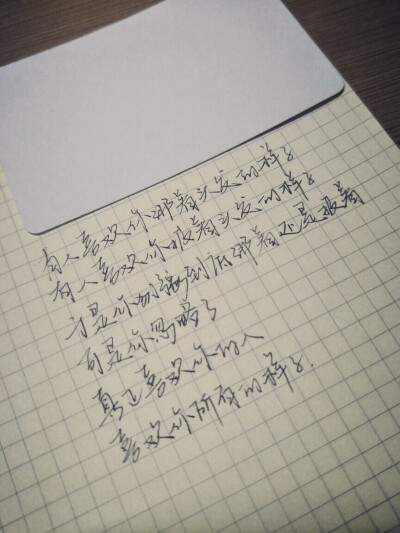 有人喜欢你绑着头发的样子
有人喜欢你披着头发的样子
于是你犹豫到底绑着还是披着
可是你忽略了
真正喜欢你的人
喜欢你所有的样子.